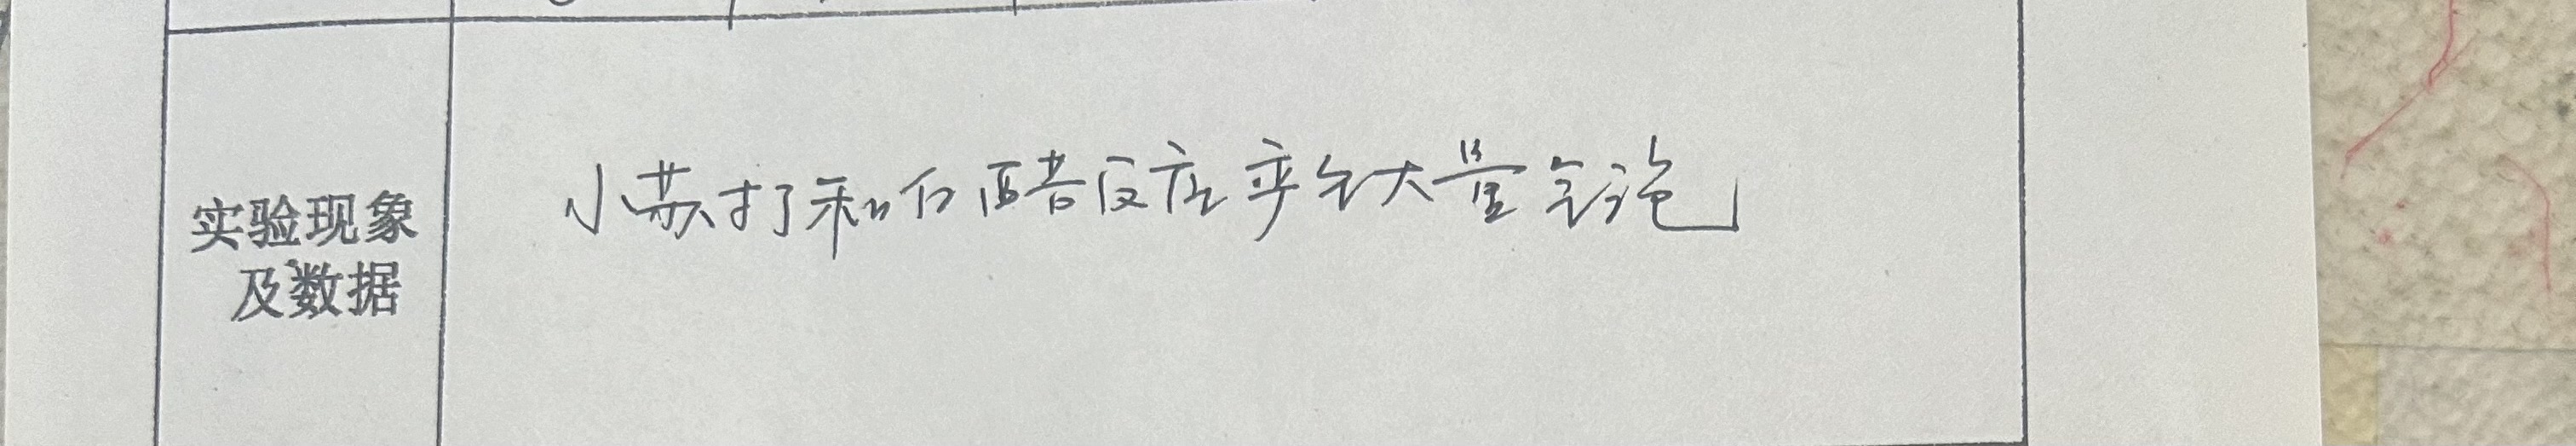 实验现象
及数据
小苏打和白醋反应产生大量气泡